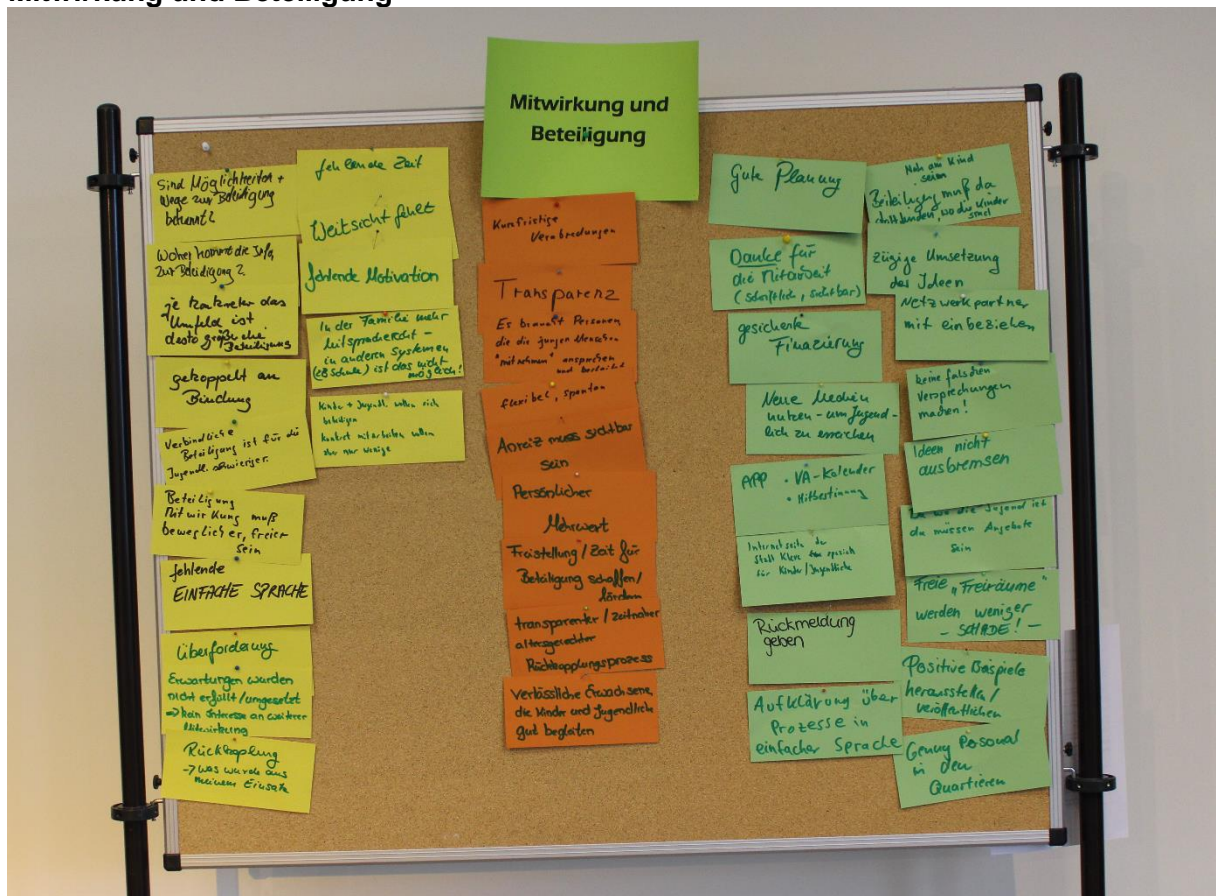 Mitwirkung und Beteiligung
Mitwirkung und
Beteiligung
Sind Möglichkeiten +
Wege zur Beteiligung
bekannt?
Woher kommt die Info
zur Beteiligung?
je konkreter das
Umfeld ist
desto größer die
Beteiligung
gekoppelt an
Bindung
Verbindliche
Beteiligung ist für die
Jugendl. schwieriger.
Beteiligung
Mitwirkung muß
beweglicher, freier
sein
fehlende
EINFACHE SPRACHE
Überforderung
Erwartungen wurden
nicht erfüllt/umgesetzt
→ kein Interesse an weiterer
Mitwirkung
Rückkopplung
→ was wurde aus
meinem Einsatz
fehlende Zeit
Weitsicht fehlt
fehlende Motivation
In der Familie mehr
Mitspracherecht –
in anderen Systemen
(zB Schule) ist das nicht
möglich!
Kinder + Jugendl. wollen sich
beteiligen
Konkret mitarbeiten wollen
aber nur wenige
Kurzfristige
Verabredungen
Transparenz
Es braucht Personen
die die jungen Menschen
"mitnehmen" ansprechen
und
flexibel, spontan
Anreiz muss sichtbar
sein
Persönlicher
Mehrwert
Freistellung / Zeit für
Beteiligung schaffen/
fördern
transparenter / zeitnaher
altersgerechter
Rückkopplungsprozess
Verlässliche Erwachsene,
die Kinder und Jugendlich
gut begleiten
Gute Planung
Danke für
die Mitarbeit
(schriftlich, sichtbar)
gesicherte
Finanzierung
Neue Medien
nutzen – um Jugend-
lich zu erreichen
APP • VA-Kalender
• Mitbestimmung
Internetseite der
Stadt Kleve speziell
für Kinder/Jugendliche
Rückmeldung
geben
Aufklärung über
Prozesse in
einfacher Sprache
Nah am Kind
sein
Beteiligung muß da
stattfinden, wo die Kinder
sind
zügige Umsetzung
der Ideen
Netzwerkpartner
mit einbeziehen
keine falschen
Versprechungen
machen!
Ideen nicht
ausbremsen
wo die Jugend ist
da müssen Angebote
sein
Freie „Freiräume"
werden weniger
– SCHADE! –
Positive Beispiele
herausstellen/
veröffentlichen
Genug Personal
in den
Quartieren